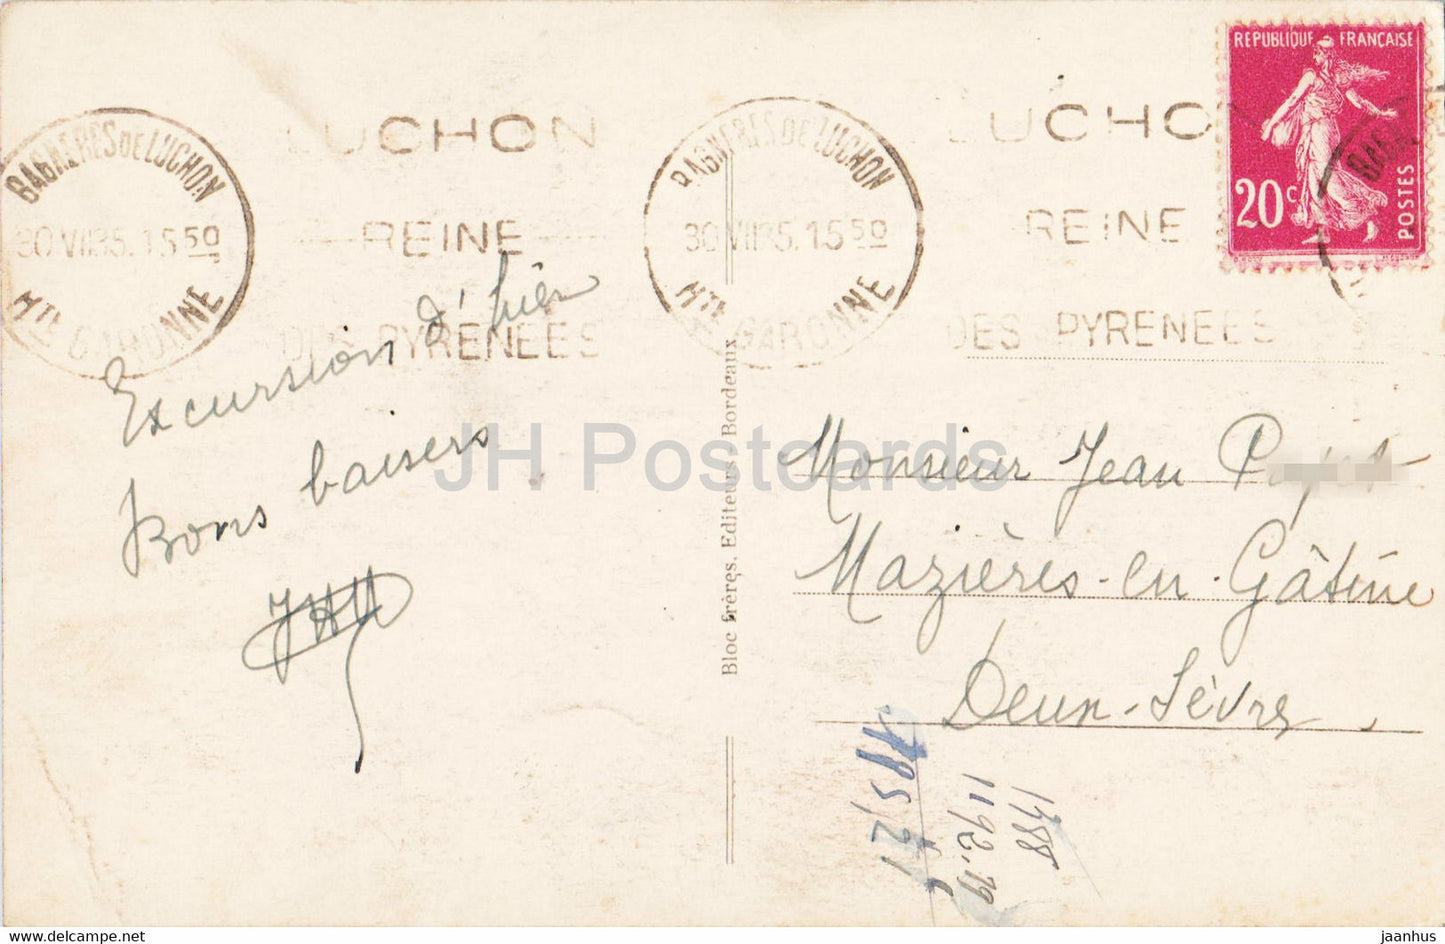 REPUBLIQUE FRANÇAISE
20c
POSTES
BAGNERES DE LUCHON
30 VII 35. 15 50
Hte GARONNE
LUCHON
REINE
DES PYRENEES
BAGNERES DE LUCHON
30 VII 35. 15 50
Hte GARONNE
LUCHO
REINE
DES PYRENEES
Excursion d'hier
Bons baisers
Bloc frères, Editeurs, Bordeaux
Monsieur Jean
Mazières-en-Gâtine
Deux-Sèvres
1388
1192.79
JH Postcards
www.delcampe.net
jaanhus